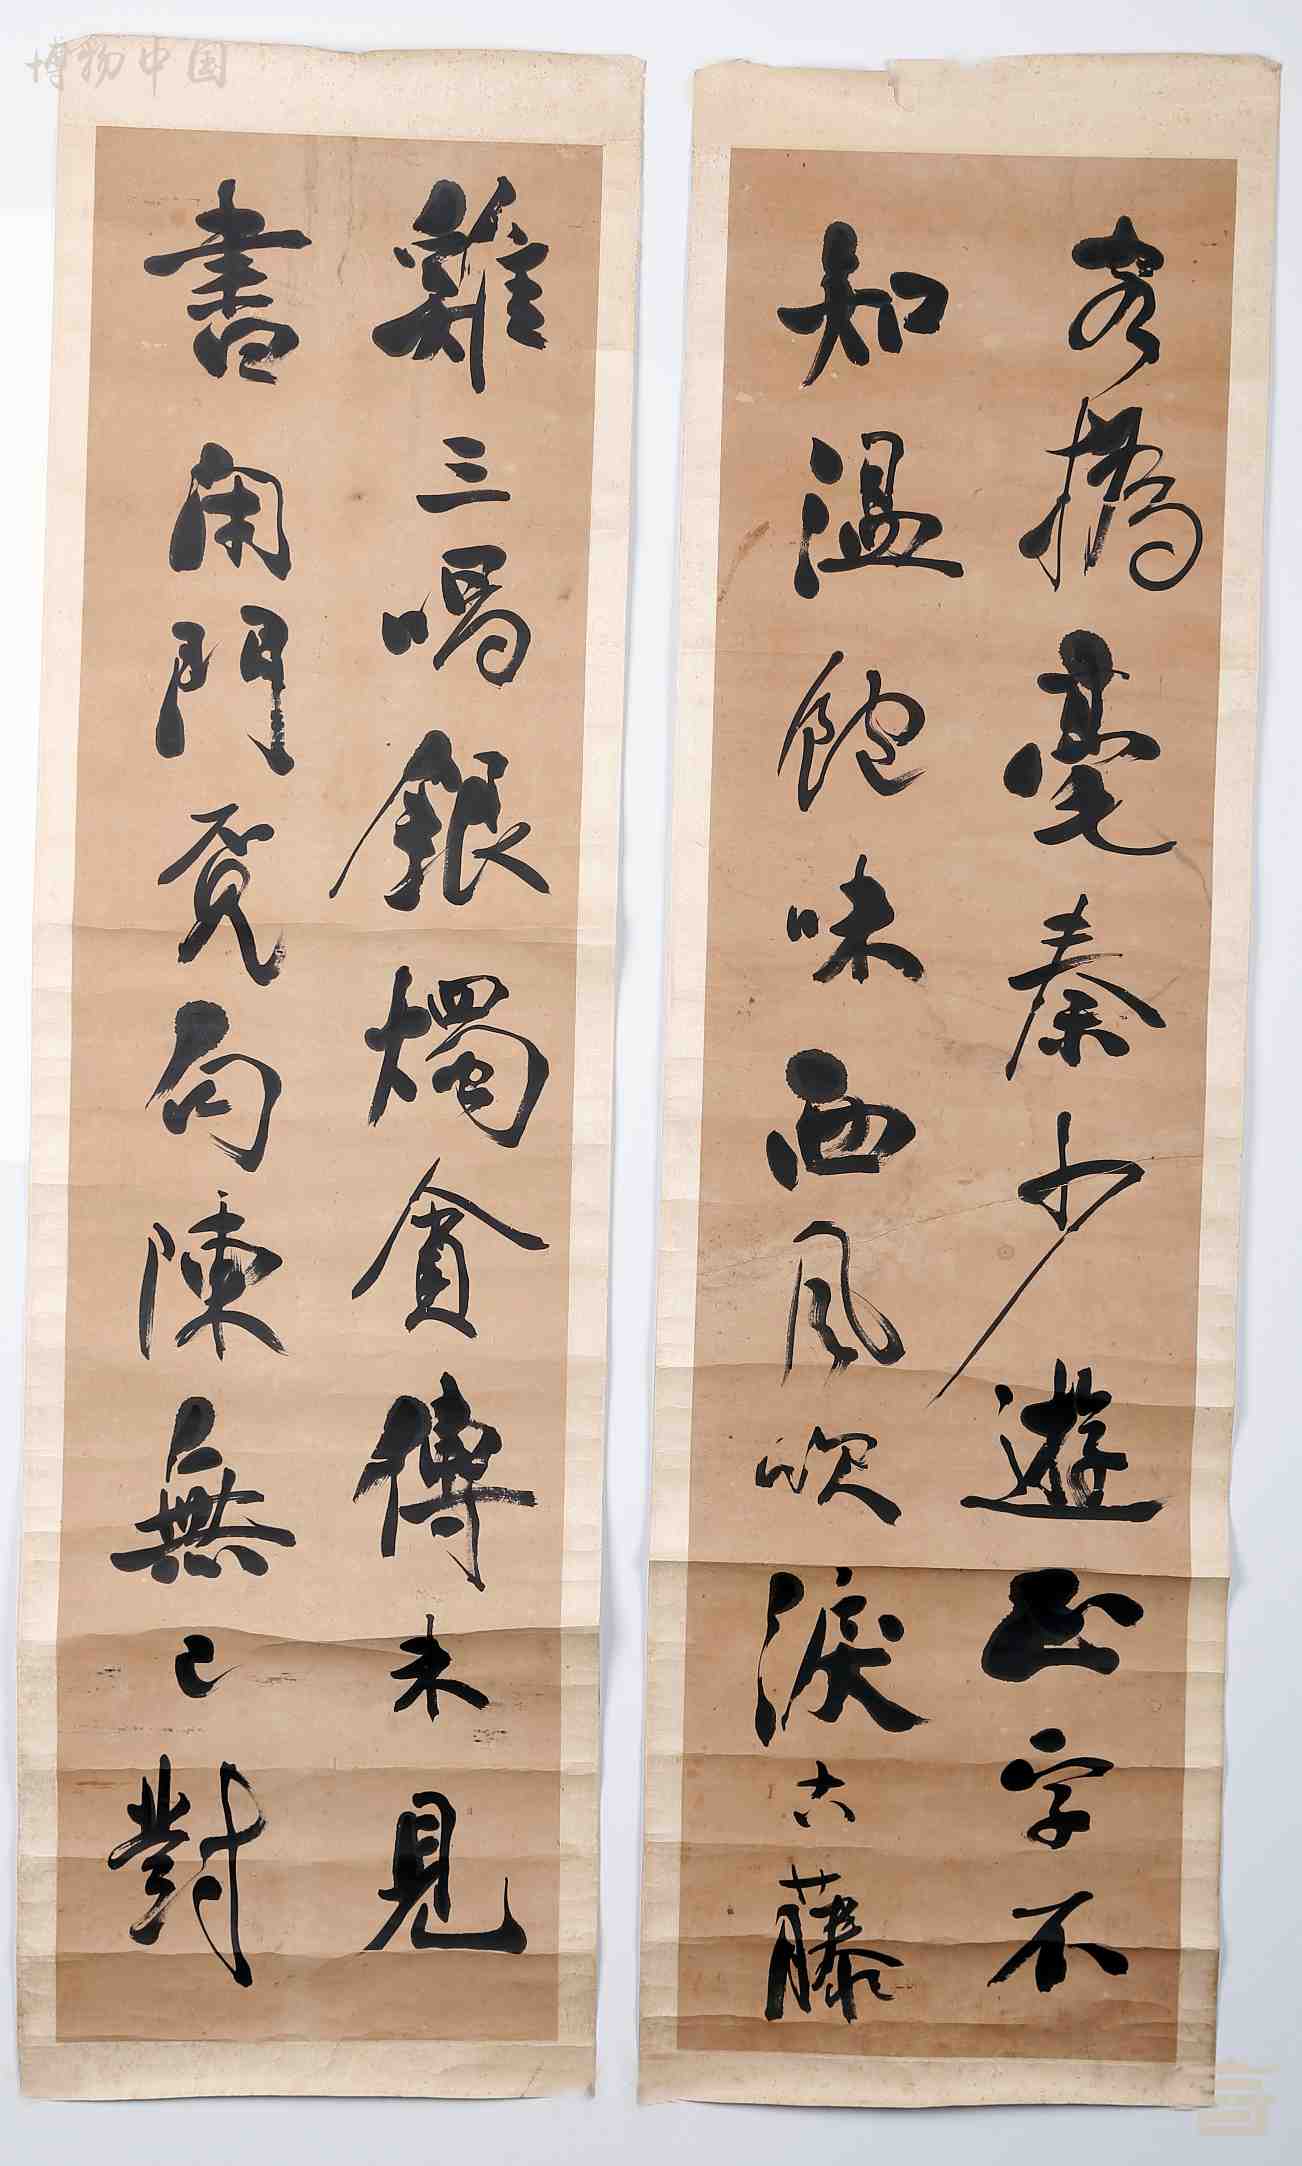 博物中国
雞三唱銀燭貪傳未見
書閉門覓句陳無己對
客揮毫秦少遊正字不
知溫飽味西風吹淚古藤